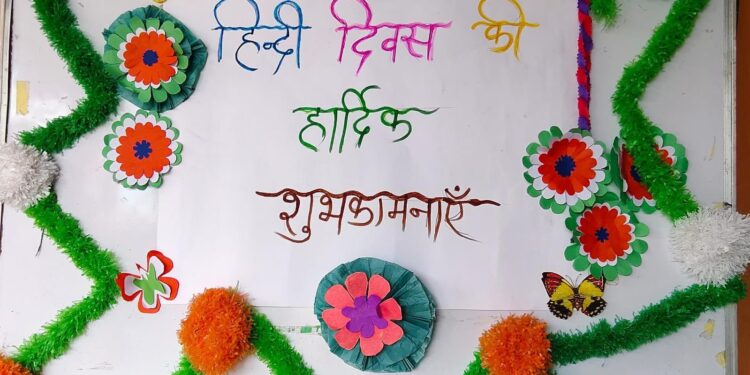 हिन्दी दिवस की
हार्दिक
शुभकामनाएँ